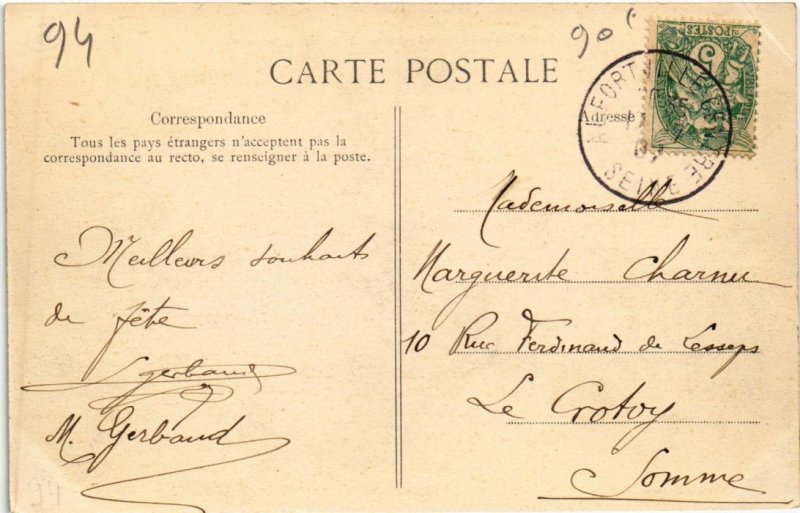 94
90
POSTES
5
ALFORTVILLE
SEINE
CARTE POSTALE
Correspondance
Tous les pays étrangers n'acceptent pas la
correspondance au recto, se renseigner à la poste.
Meilleurs souhaits
de fête
Gerbaud
M. Gerbaud
94
Adresse
Mademoiselle
Marguerite Charnu
10 Rue Ferdinand de Lesseps
Le Crotoy
Somme